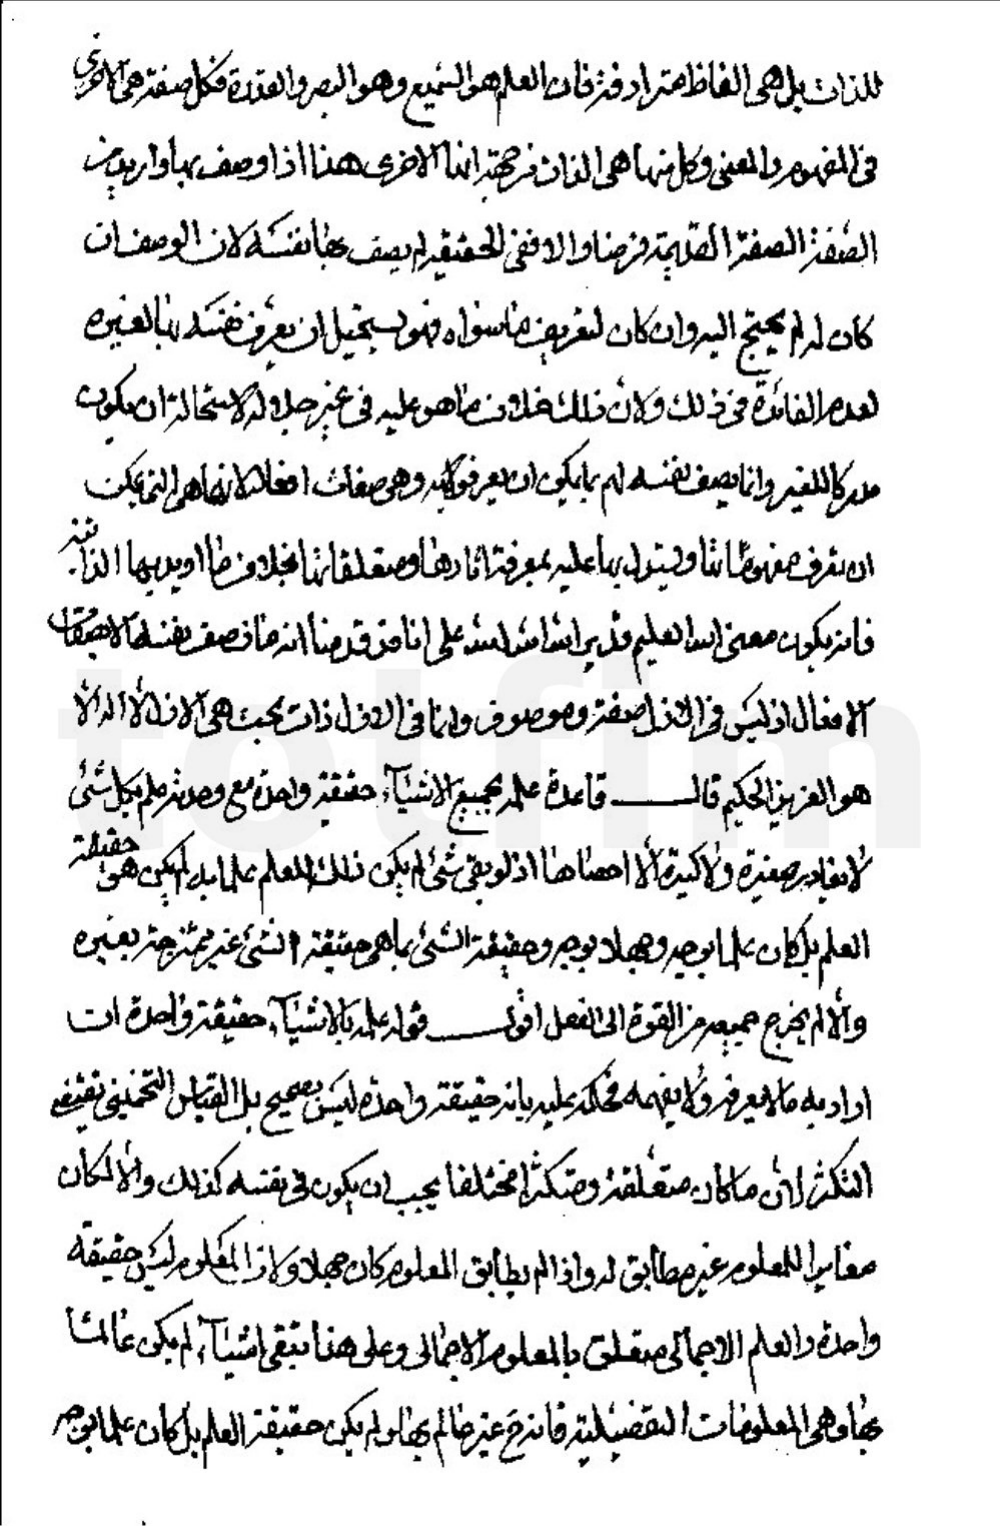 للذات بل هي الفاظ مترادفة فان العلم هو السميع وهو البصر والقدرة فكل صفة هي الاخرى
في المفهوم والمعنى وكل منها هي الذات فرجهة انها الاخرى هذا اذا وصف بها واريد من
الصفة الصفة القديمة فرضا والا ففي الحقيقة لم يصف بها نفسه لان الوصف ان
كان له لم يحتج اليه وان كان لتعريف ما سواه فهو يستحيل ان يعرف نفسه بها لغيره
لعدم الفائدة في ذلك ولان ذلك خلاف ما هو عليه في عز جلاله لاستحالة ان يكون
مدركا للغير وانما يصف نفسه لهم بما يمكن ان يعرفوا به وهي صفات افعاله لانها هي التي يمكن
ان تعرف مفهوماتها وليتدل بها عليه بمعرفة اثارها ومتعلقاتها بخلاف ما اريد بها الذاتية
فانه يكون معنى الله العليم قدير الله الله الله على انا قد قدمنا انه ما وصف نفسه الا بصفات
الافعال اذ ليس في الازل صفة وموصوف وانما في الازل ذات بحت هي الازل لا اله الا
هو العزيز الحكيم قال قاعدة علمه بجميع الاشياء حقيقة واحدة مع وحدته علم بكل شئ
لا يغادر صغيرة ولا كبيرة الا احصاها اذ لو بقي شئ لم يكن ذلك العلم علما به لم يكن هو حقيقة
العلم بل كان علما بوجه وجهلا بوجه وحقيقة الشئ بما هي حقيقة الشئ غير ممتزجة بغيره
والا لم يخرج جميعه من القوة الى الفعل اقول قوله علمه بالاشياء حقيقة واحدة ان
اراد به ما لا يعرفه ولا يفهمه فحكمه عليه بانه حقيقة واحدة ليس بصحيح بل القياس التخميني يقتضي
التكثر لان ما كان متعلقة ومتكثرا مختلفا يجب ان يكون في نفسه كذلك والا لكان
مغايرا للمعلوم غير مطابق له واذا لم يطابق المعلوم كان جهلا ولان المعلوم ليس حقيقة
واحدة والعلم الاجمالي متعلق بالمعلوم الاجمالي وعلى هذا تبقى اشياء لم يكن عالما
بها وهي المعلومات التفضيلية فانه ح غير عالم بها ولم يكن حقيقة العلم بل كان علما بوجه